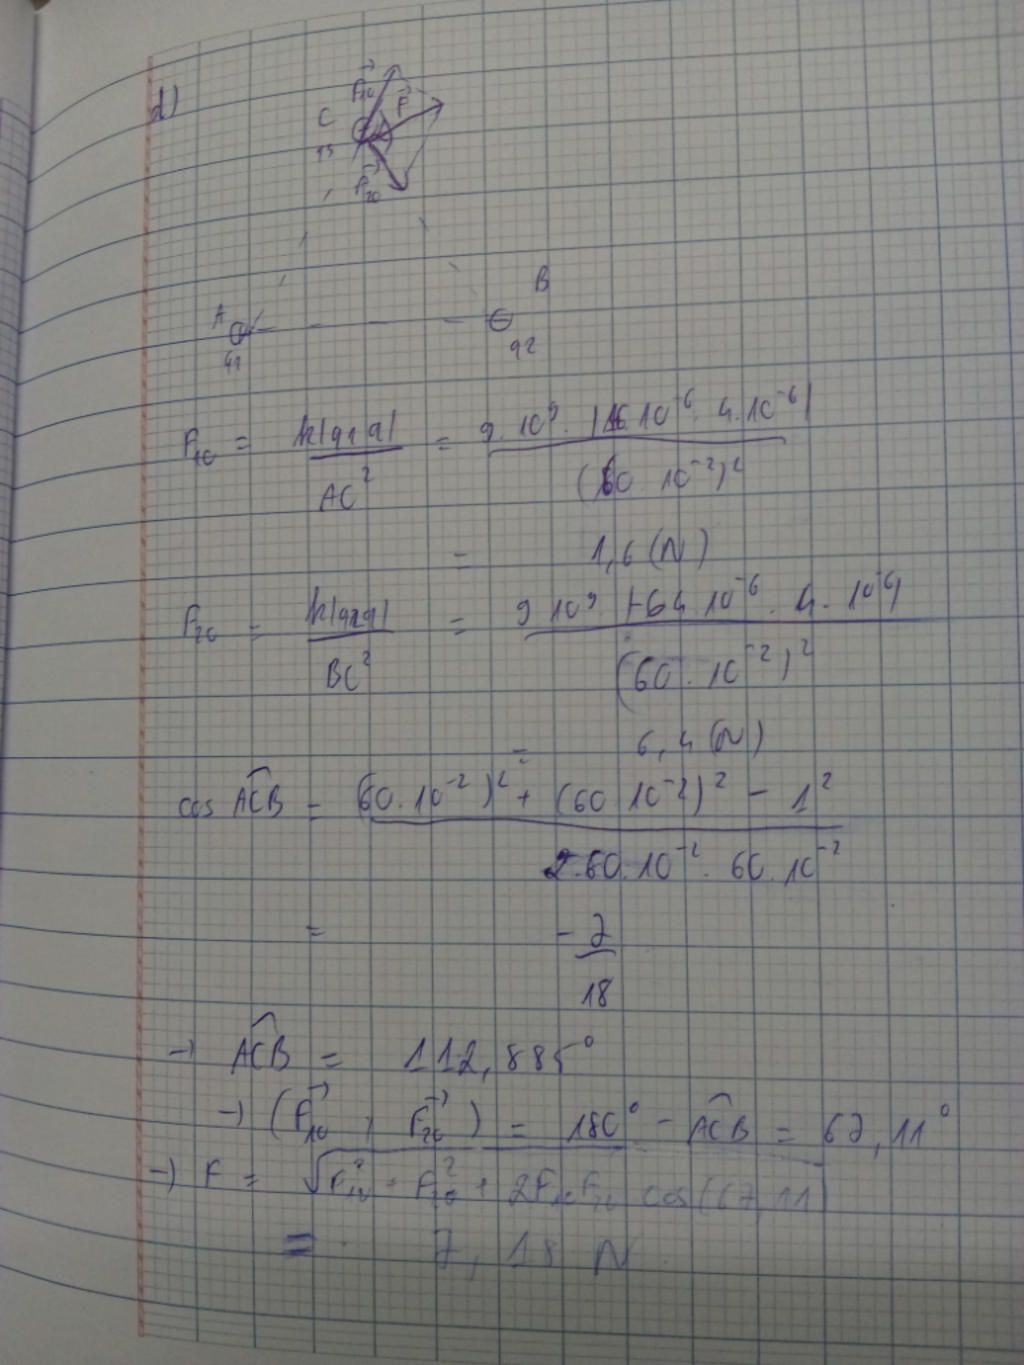 d)
F₁₀
F
C
q3
F₂₀
B
A
q1
q2
F₁₀ = k|q1q| / AC² = 9.10⁹.|16.10⁻⁶.4.10⁻⁶| / (60 10⁻²)²
= 1,6 (N)
F₂₀ = k|q2q| / BC² = 9 10⁹.|-64.10⁻⁶.4.10⁻⁶| / (60.10⁻²)²
= 6,4 (N)
cos ACB = (60.10⁻²)² + (60 10⁻²)² - 1² / 2.60.10⁻².60.10⁻²
= -7 / 18
→ ACB = 112,885°
→ (F₁₀, F₂₀) = 180° - ACB = 67,11°
→ F = √F₁₀² + F₂₀² + 2F₁₀F₂₀ cos(67,11)
= 7,18 N